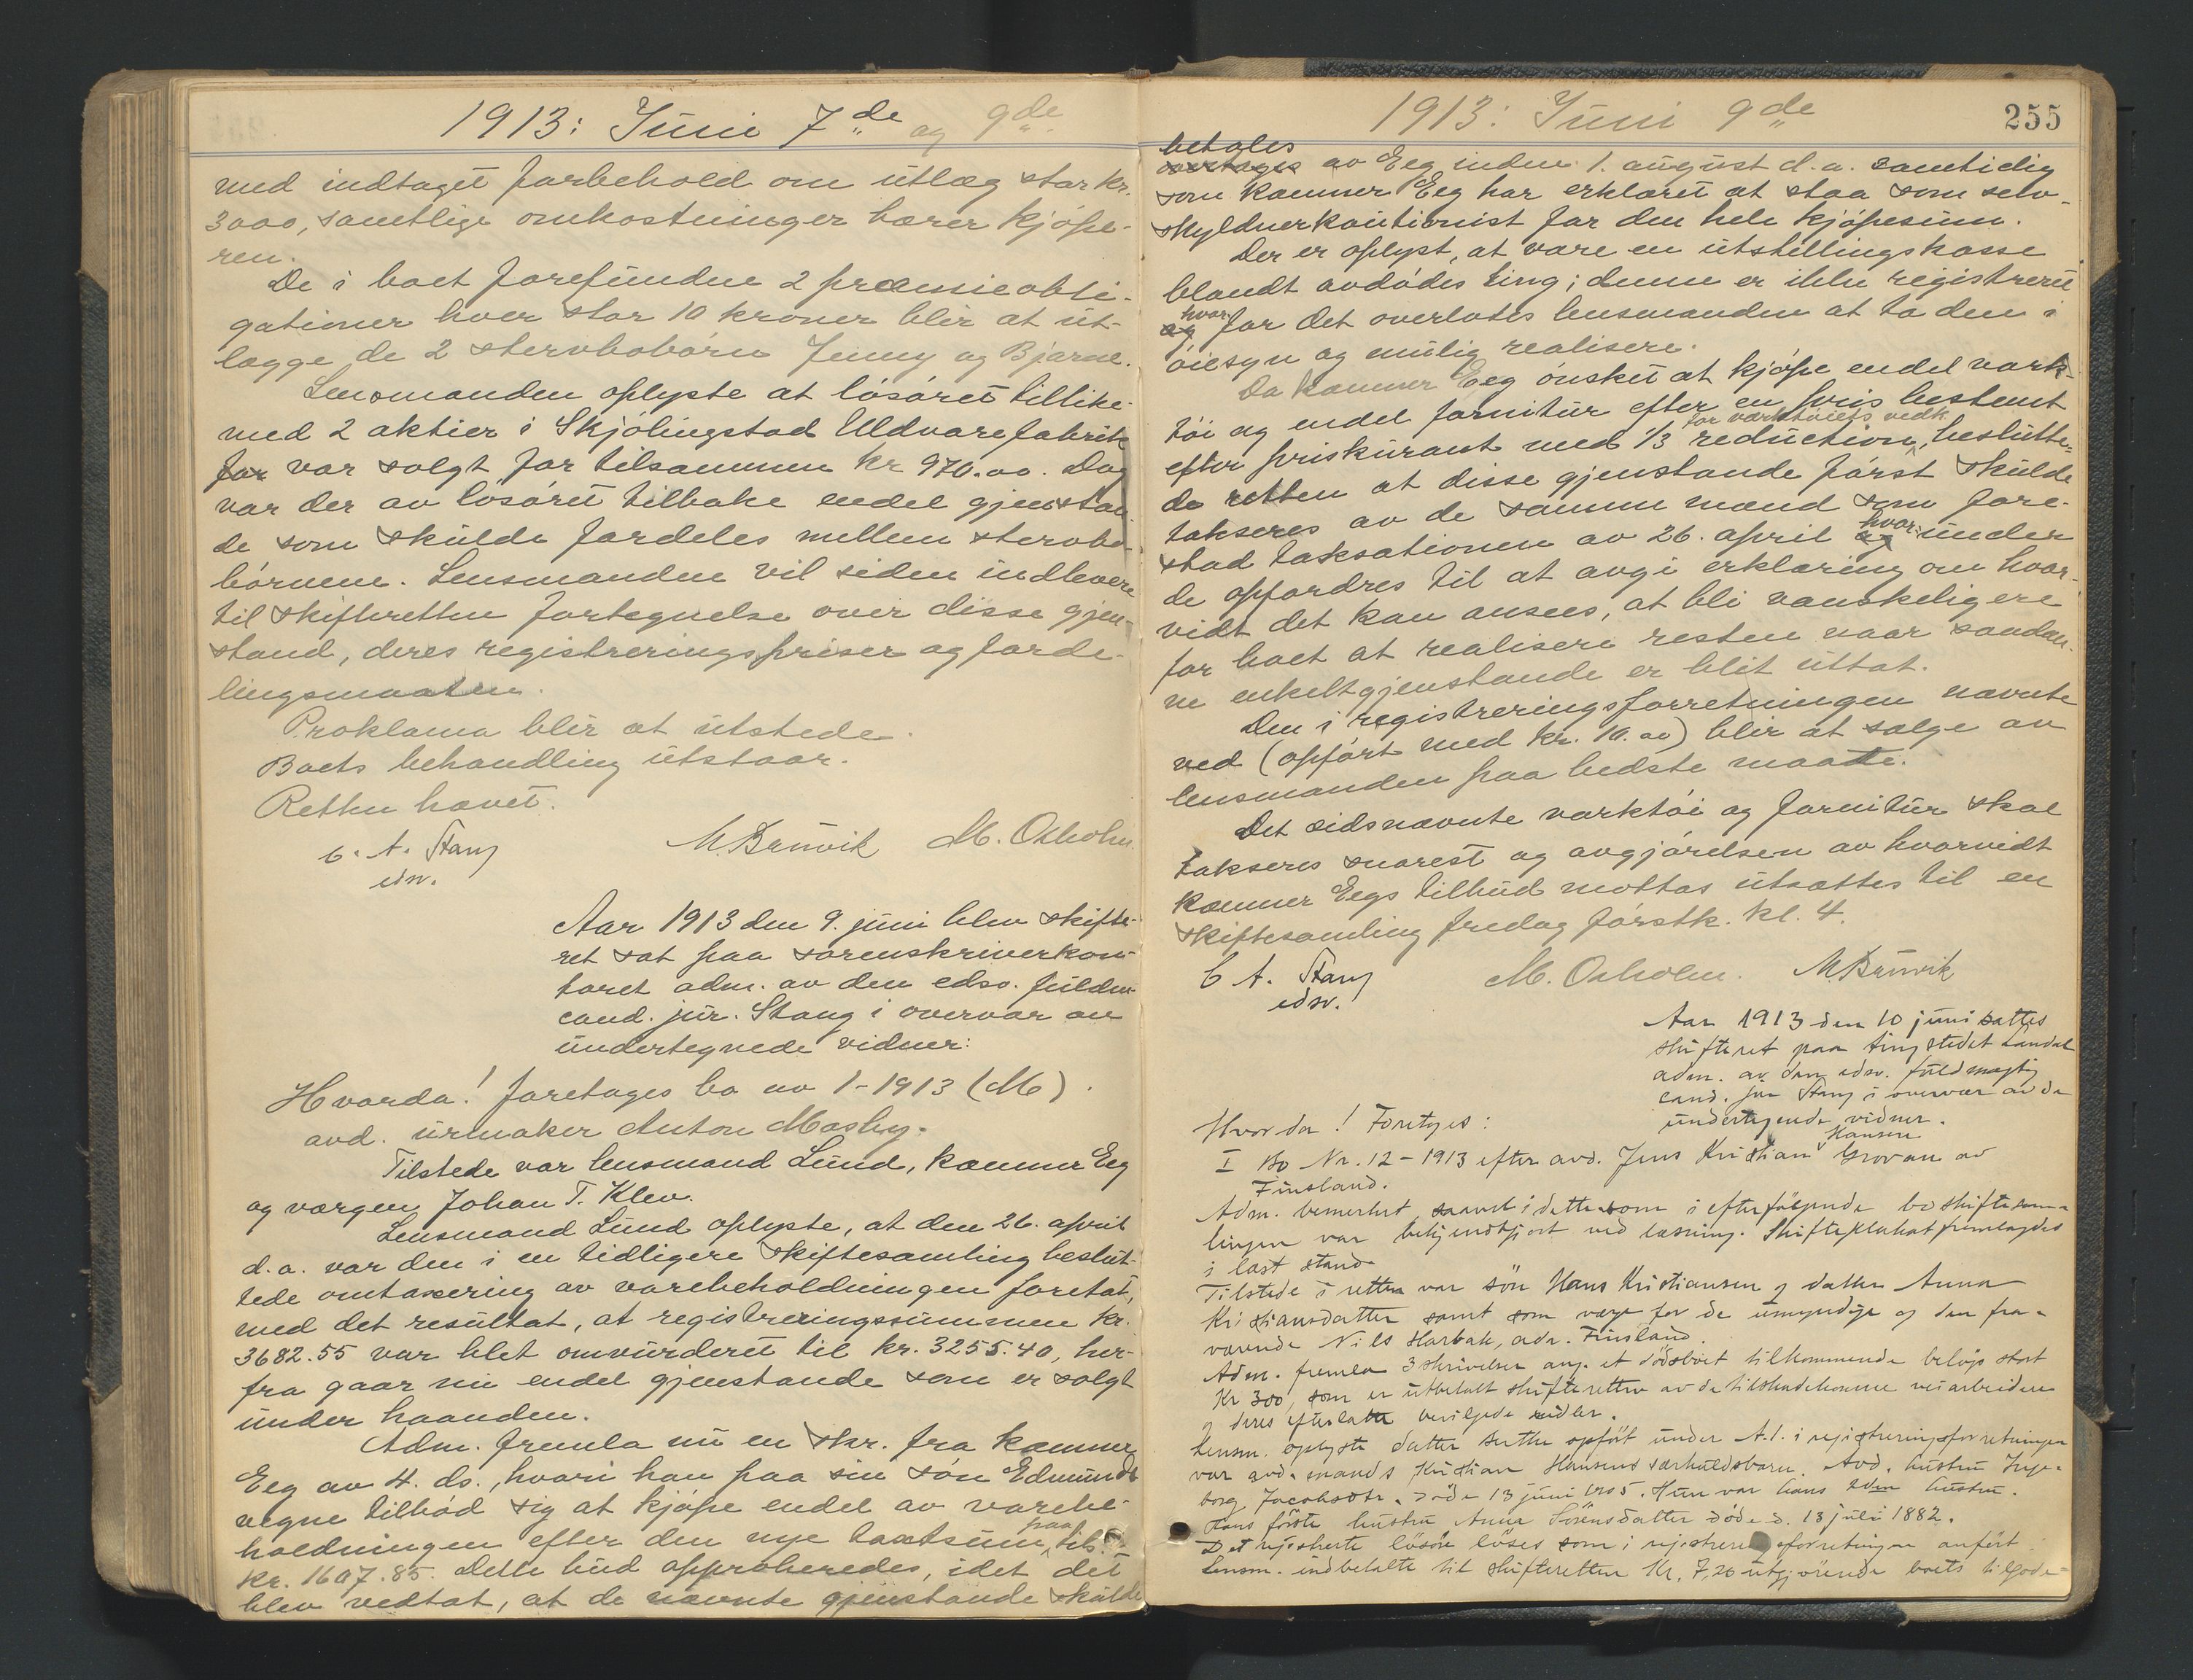 1913: Juni 7de og 9de
med indtaget forbehold om utlæg stor kr.
3000, samtlige omkostninger bærer kjøpe-
ren.
De i boet forefundne 2 præmieobli-
gationer hver stor 10 kroner blir at ut-
lægge de 2 stervbobørn Jenny og Bjarne.
Lensmanden oplyste at løsøret tillike-
med 2 aktier i Skjølingstad Uldvarefabrik
for var solgt for tilsammen kr 970.00. Dog
var der av løsøret tilbake endel gjenstan
de som skulde fordeles mellem stervbo-
børnene. Lensmanden vil siden indlevere
til skifteretten fortegnelse over disse gjen-
stand, deres registreringspriser og forde-
lingsmaaten.
Proklama blir at utstede.
Boets behandling utstaar.
Retten hævet.
C. A. Stang
edsv.
M. Brunvik M. Oxholm.
Aar 1913 den 9. juni blev skifte-
ret sat paa sorenskriverkon-
toret adm. av den edsv. fuldm.
cand. jur. Stang i overvær av
undertegnede vidner:
Hvorda! foretages bo nr 1-1913 (M)
avd. urmaker Anton Mosby.
Tilstede var lensmand Lund, kæmner Eeg
og værgen Johan T. Klev.
Lensmand Lund oplyste, at den 26. april
d.a. var den i en tidligere skiftesamling beslut-
tede omtaxering av varebeholdningen foretat,
med det resultat, at registreringssummen kr.
3682.55 var blet omvurderet til kr. 3255.40, her-
fra gaar nu endel gjenstande som er solgt
under haanden.
Adm. fremla nu en skr. fra kæmner
Eeg av 4. ds., hvori han paa sin søn Edmunds
vegne tilbød sig at kjøpe endel av varebe-
holdningen efter den nye taxtsum paa til
kr. 1607.85. Dette bud approberedes, idet det
blev vedtat, at de nævnte gjenstande skulde
1913: Juni 9de
255
betales
overtages av Eeg inden 1. august d.a. samtidig
som kæmner Eeg har erklæret at staa som selv-
skyldnerkautionist for den hele kjøpesum.
Der er oplyst, at være en utstillingskasse
blandt avdødes ting; denne er ikke registreret
og hvorfor det overlates lensmanden at ta den i
øiesyn og mulig realisere.
Da kæmner Eeg ønsket at kjøpe endel verk-
tøi og endel fornitur efter en pris bestemt
for værktøiets vedk.
efter priskurant med 1/3 reduction, beslutte-
de retten at disse gjenstande først skulde
takseres av de samme mænd som fore-
stod taksationen av 26. april og hvor under
de opfordres til at avgi erklæring om hvor-
vidt det kan ansees, at bli vanskeligere
for boet at realisere resten naar saadan-
ne enkeltgjenstande er blit uttat.
Den i registreringsforretningen nævnte
ved (opført med kr. 10.00) blir at sælge av
lensmanden paa bedste maate.
Det sidsnævnte verktøi og fornitur skal
takseres snarest og avgjørelsen av hvorvidt
kæmner Eegs tilbud mottas utsættes til en
skiftesamling fredag førstk. kl. 4.
C A. Stang
edsv.
M. Oxholm. M. Brunvik
Aar 1913 den 10 juni sattes
skifteret paa tingstedet Laudal
adm. av den edsv. fuldmægtig
cand. jur Stang i overvær av de
undertegnede vidner.
Hvorda! Foretages:
I Bo Nr. 12-1913 efter avd. Jens Kristian Hansen Grovan av
Finsland.
Adm. bemerket saavel i dette som i efterfølgende bo skiftesam-
lingen var bekjendtgjort ved læsning. Skifteplakat fremlagdes
i læst stand
Tilstede i retten var søn Hans Kristiansen og datter Anna
Kristiansdatter samt som værge for de umyndige og den fra-
værende Nils Harbak, adr. Finsland.
Adm. fremla 3 skrivelser ang. et dødsboet tilkommende beløp stort
Kr 300, som er utbetalt skifteretten av de tilskadekomne veiarbeidere
og deres efterlatte bevilgede midler.
Lensm. oplyste datter Berthe opført under A.1. i registreringsforretningen
var avd. mands Kristian Hansens særkuldsbarn. Avd. hustru Inge-
borg Jacobsdtr. døde 13 juni 1905. Hun var hans 2den hustru.
Hans første hustru Anna Sörensdatter døde d. 13 juli 1882.
Det registrerte løsøre løses som i registreringsforretningen anført.
Lensm. indbetalte til skifteretten Kr. 7,20 utgjørende boets tilgode-